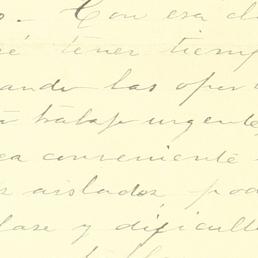 . Con esa
tener tiemp
ando las oper
trabajo urgente
conveniente
aislados, pod
clase y dificulta